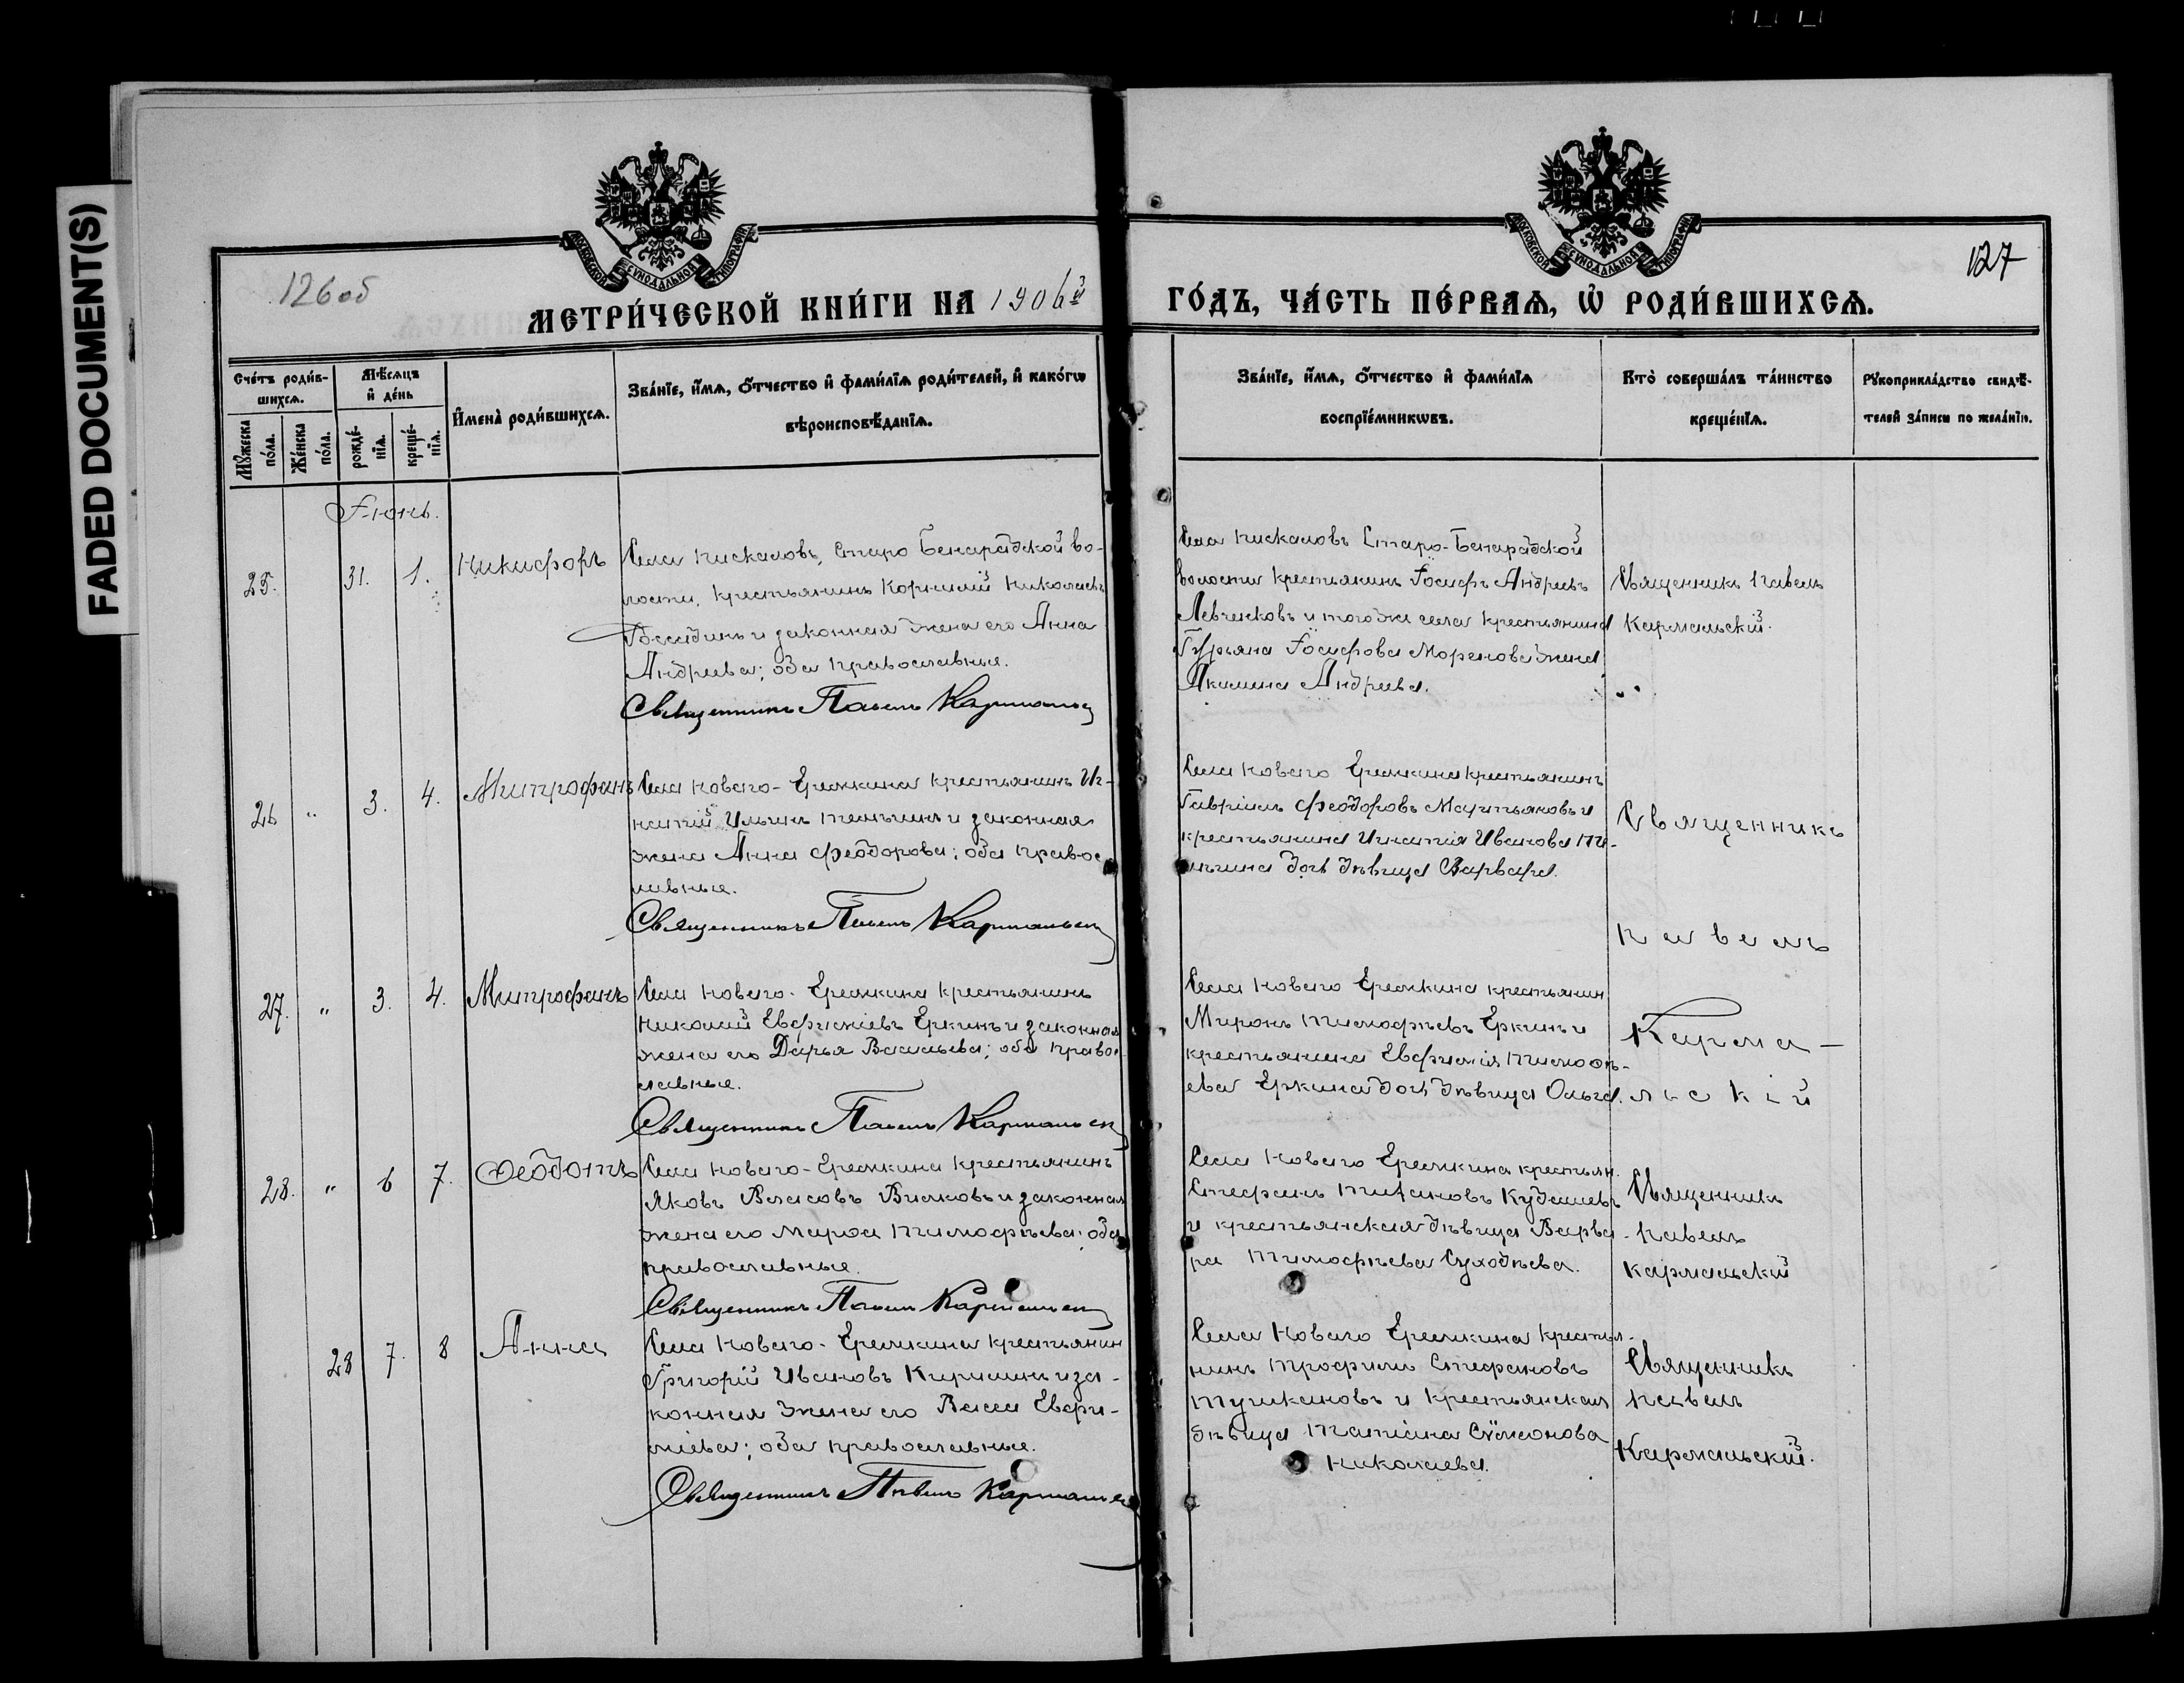 FADED DOCUMENT(S)
126 об
127
МОСКОВСКОЙ СѴНОДАЛЬНОЙ ТИПОГРАФІИ
МОСКОВСКОЙ СѴНОДАЛЬНОЙ ТИПОГРАФІИ
МЕТРИ́ЧЕСКОЙ КНИ́ГИ НА 1906й
ГО́ДЪ, ЧА́СТЬ ПЕ́РВАѦ, Ѡ҆ РОДИ́ВШИХСѦ.
Сче́тъ роди́в-
шихсѧ.
Мꙋ́жеска по́ла.
Же́нска по́ла.
Мѣ́сѧцъ
и҆ де́нь
рожде́-
нїѧ.
креще́-
нїѧ.
И҆мена̀ роди́вшихсѧ.
Зва́нїе, и҆́мѧ, ѻ҆́тчество и҆ фами́лїѧ роди́телей, и҆ како́гѡ
вѣроисповѣ́данїѧ.
Зва́нїе, и҆́мѧ, ѻ҆́тчество и҆ фами́лїѧ
воспрїе́мникѡвъ.
Кто̀ соверша́лъ та́инство
креще́нїѧ.
Рꙋкоприкла́дство свидѣ́-
телей за́писи по жела́нїю.
Іюнь.
25.
31.
1.
Никифоръ
Села Пискаловъ, Старо Бенарадской во-
лости, крестьянинъ Корнилій Николаевъ
Бесѣдинъ и законная жена его Анна
Андреева; оба православные.
Священникъ Павелъ Кармальск
Села Пискаловъ Старо-Бенарадской
волости крестьянинъ Іосифъ Андреевъ
Левченковъ и того же села крестьянина
Гурьяна Іосифова жена
Акилина Андреева.
Священникъ Павелъ
Кармальскій.
26
"
3.
4.
Митрофанъ
Села Новаго-Еремкина крестьянинъ Иг-
натій Ильинъ и законная
жена Анна Феодорова; оба правос
лавные.
Священникъ Павелъ Кармальск
Села Новаго Еремкина крестьянинъ
Гавріилъ Феодоровъ Мартьяновъ и
крестьянина Игнатія Иванова
дочь дѣвица Варвара.
Священникъ
Павелъ
27.
"
3.
4.
Митрофанъ
Села Новаго-Еремкина крестьянинъ
Николай Евфиміевъ Еркинъ и законная
жена его Дарья Васильева; оба право-
славные.
Священникъ Павелъ Кармальск
Села Новаго Еремкина крестьянин
Миронъ Тимофѣевъ Еркинъ и
крестьянина Евфимія Тимофѣ-
ева Еркина дочь дѣвица Ольга.
Карма-
льскій
28.
"
6
7.
Феодотъ
Села Новаго-Еремкина крестьянинъ
Яковъ Власовъ и законная
жена его Марѳа Тимофѣева; оба
православные.
Священникъ Павелъ Кармальск
Села Новаго Еремкина крестьян.
Стефанъ Кудашевъ
и крестьянская дѣвица Варва-
ра Тимофѣева Суходѣева.
Священникъ
Павелъ
Кармальскій
28
7.
8
Анна
Села Новаго-Еремкина крестьянин
Григорій Ивановъ и за-
конная жена его Васса Евфи-
міева; оба православные.
Священникъ Павелъ Кармальск
Села Новаго Еремкина крестья-
нинъ Трофимъ Стефановъ
Тушкановъ и крестьянская
дѣвица Татіана Сѵмеонова
Николаева.
Священникъ
Павелъ
Кармальскій.